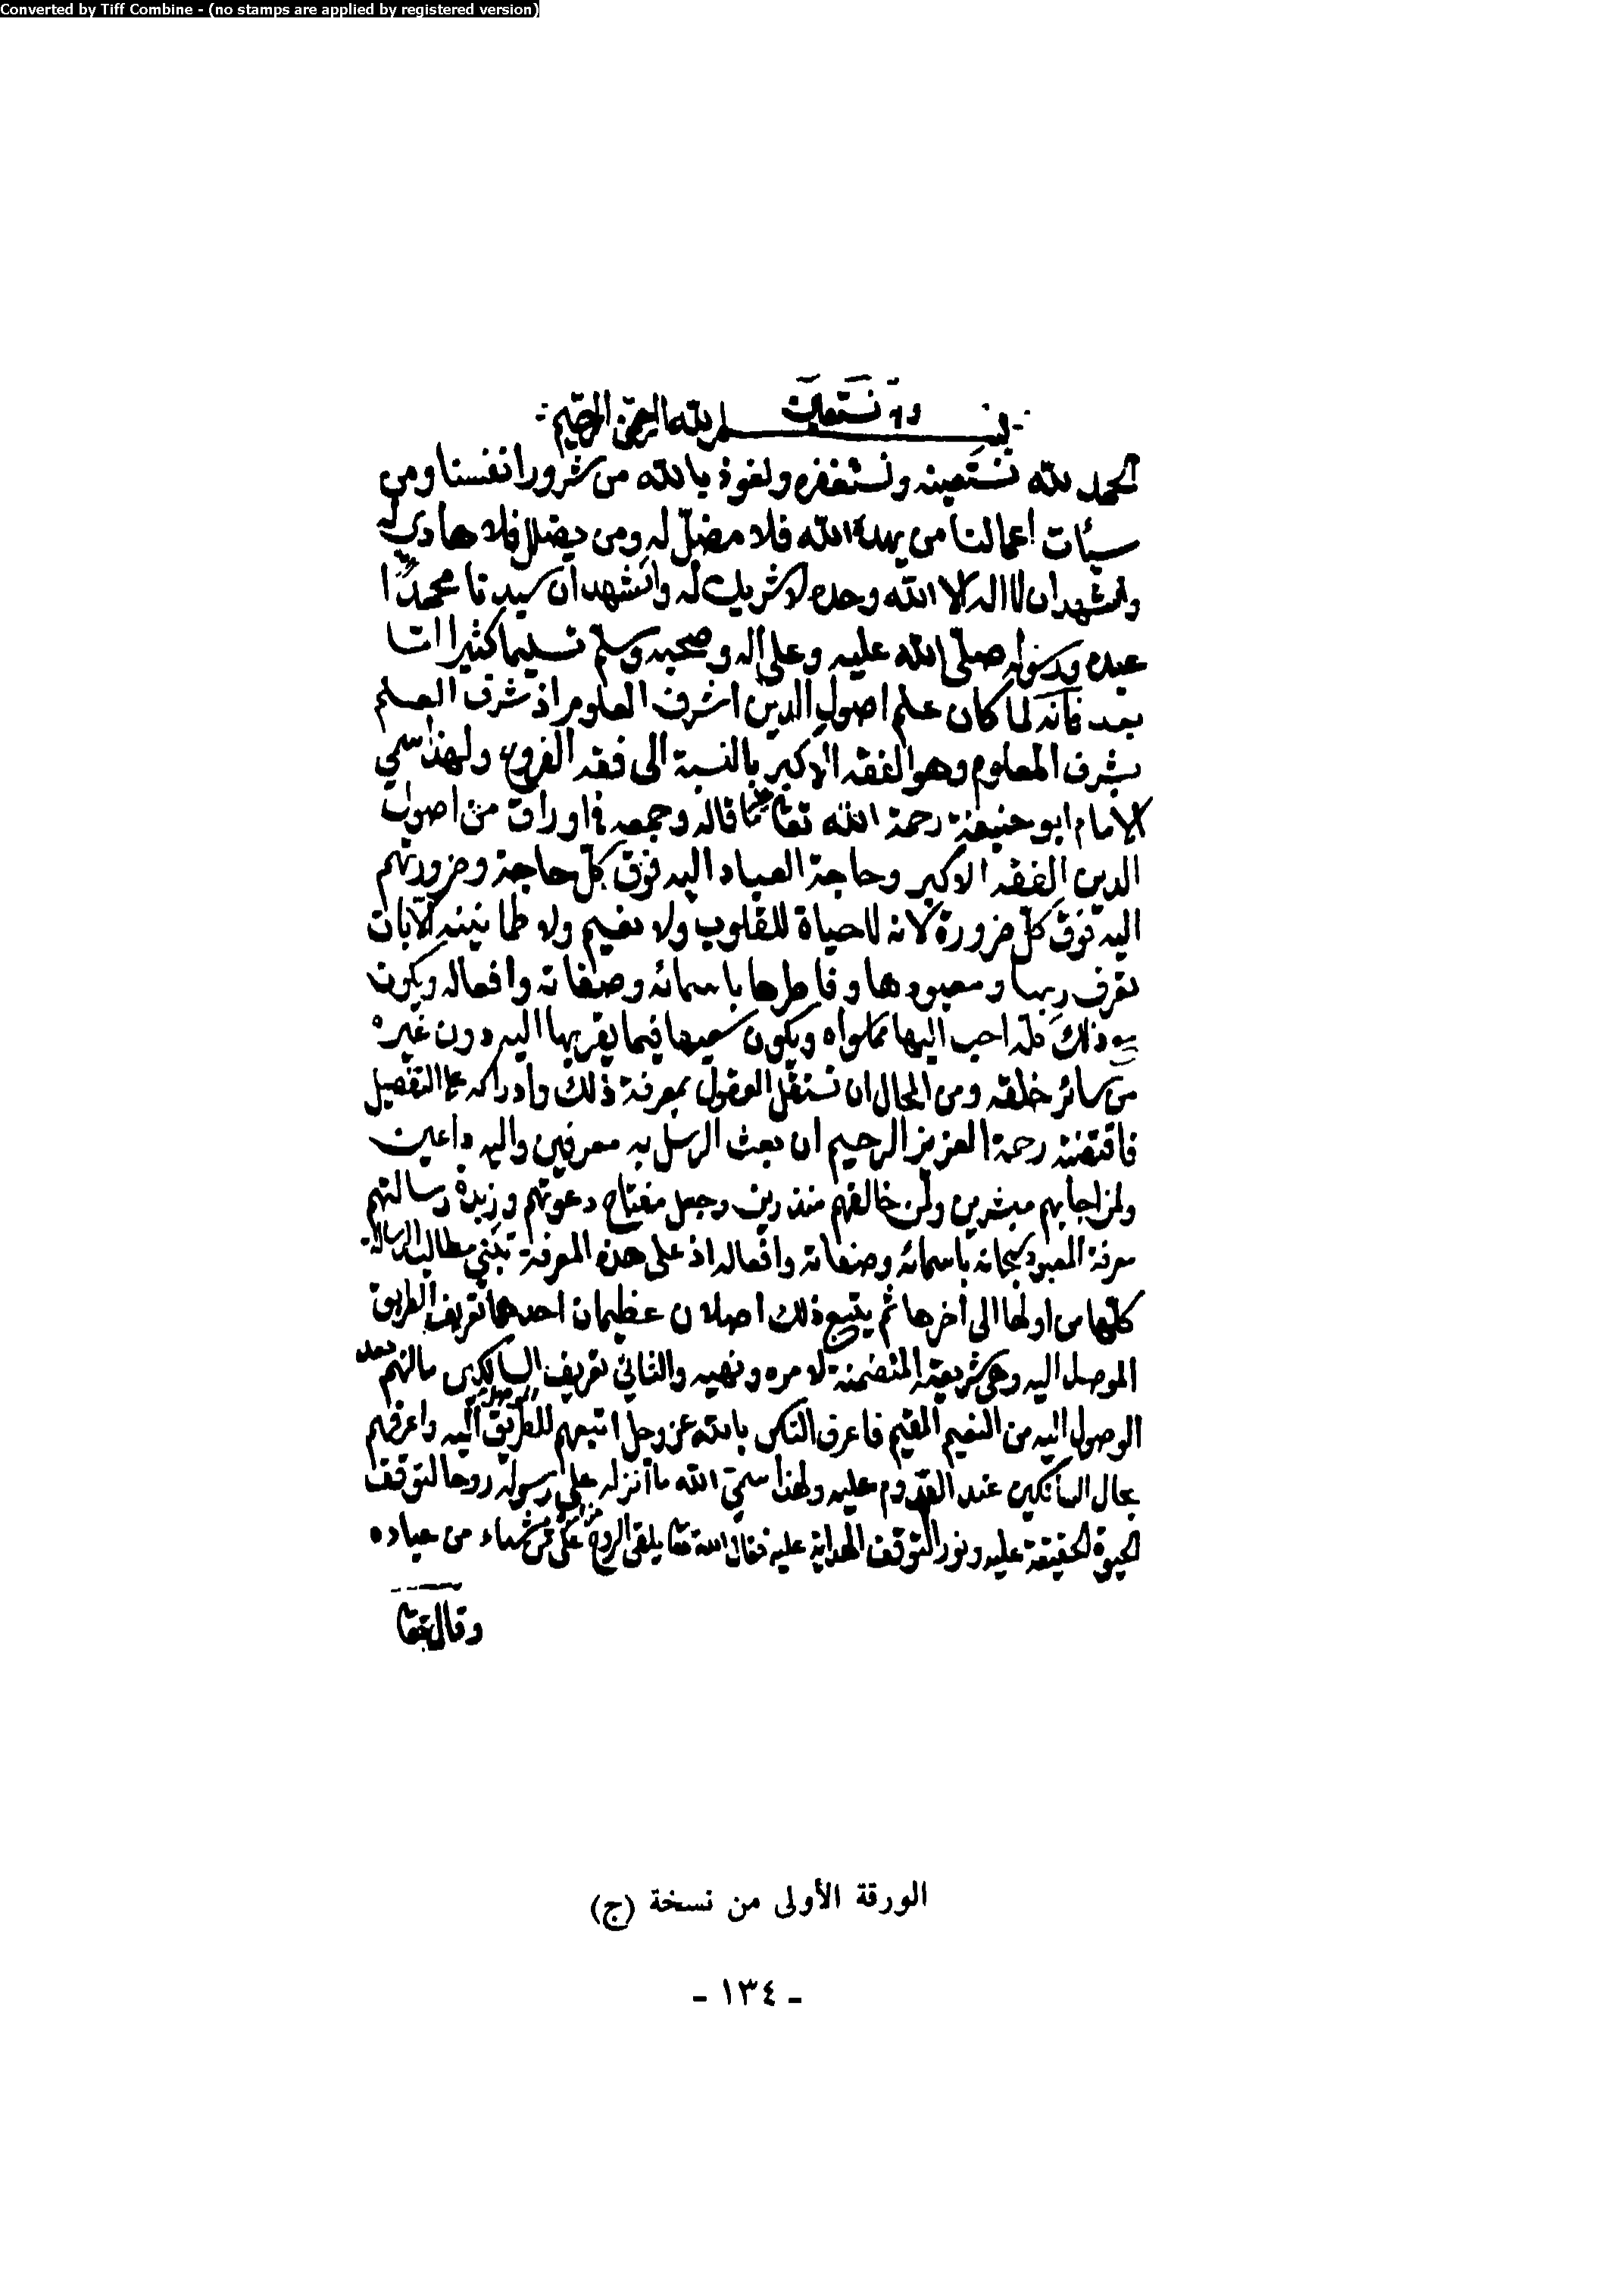 Converted by Tiff Combine - (no stamps are applied by registered version)
وبه نستعين
بسم الله الرحمن الرحيم
الحمد لله نستعينه ونستغفره ونعوذ بالله من شرور انفسنا ومن
سيئات اعمالنا من يهده الله فلا مضل له ومن يضلل فلا هادي له
ونشهد ان لا اله الا الله وحده لا شريك له ونشهد ان سيدنا محمدا
عبده ورسوله صلى الله عليه وعلى اله وصحبه وسلم تسليما كثيرا اما
بعد فانه لما كان علم اصول الدين اشرف العلوم اذ شرف العلم
بشرف المعلوم وهو الفقه الاكبر بالنسبة الى فقه الفروع ولهذا سمي
الامام ابو حنيفة رحمة الله تعا ما قاله وجمعه في اوراق من اصول
الدين الفقه الاكبر وحاجة العباد اليه فوق كل حاجة وضرورتهم
اليه فوق كل ضرورة لانه لا حياة للقلوب ولا نعيم ولا طمانينه الا بان
تعرف ربها ومعبودها وفاطرها باسمائه وصفاته وافعاله ويكون
مع ذلك كله احب اليها مما سواه ويكون سعيها فيما يقربها اليه دون غيره
من سائر خلقه ومن المحال ان تستقل العقول بمعرفة ذلك وادراكه على التفصيل
فاقتضت رحمة العزيز الرحيم ان بعث الرسل به معرفين واليه داعين
ولمن اجابهم مبشرين ولمن خالفهم منذرين وجعل مفتاح دعوتهم وزبدة رسالتهم
معرفة المعبود سبحانه باسمائه وصفاته وافعاله اذ على هذه المعرفة تبتني مطالب الرسالة
كلها من اولها الى اخرها ثم يتبع ذلك اصلان عظيمان احدهما تعريف الطريق
الموصل اليه وهي شريعته المتضمنة لامره ونهيه والثاني تعريف السالكين مالهم بعد
الوصول اليه من النعيم المقيم فاعرف الناس بالله عز وجل اتبعهم للطريق الموصل اليه واعرفهم
بحال السالكين عند القدوم عليه ولهذا سمى الله ما انزله على رسوله روحا لتوقف
الحيوة الحقيقة عليه ونورا لتوقف الهداية عليه فقال الله تعا يلقى الروح من امره على من يشاء من عباده
وقال تعا
الورقة الأولى من نسخة (ج)
- ١٣٤ -